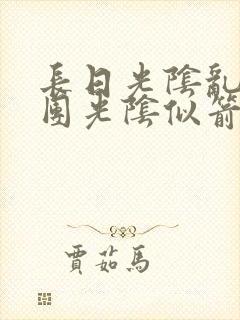 長日光陰亂
圍光陰似箭
賈茹馬